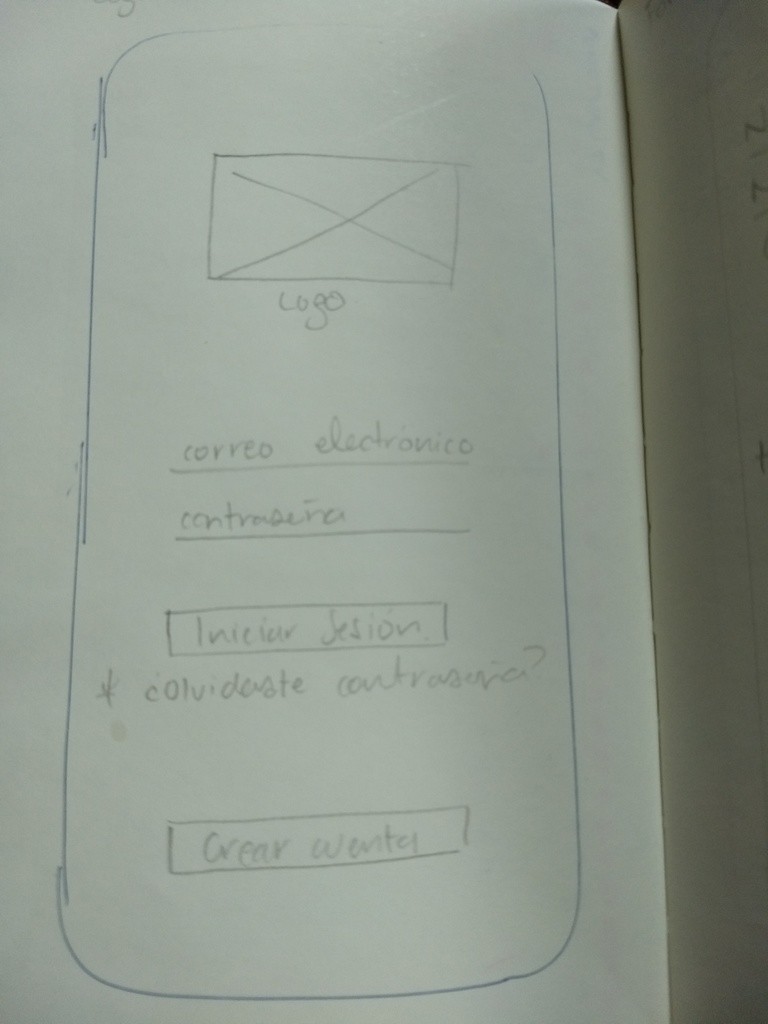 Logo
correo electrónico
contraseña
Iniciar Sesión
* ¿olvidaste contraseña?
Crear cuenta